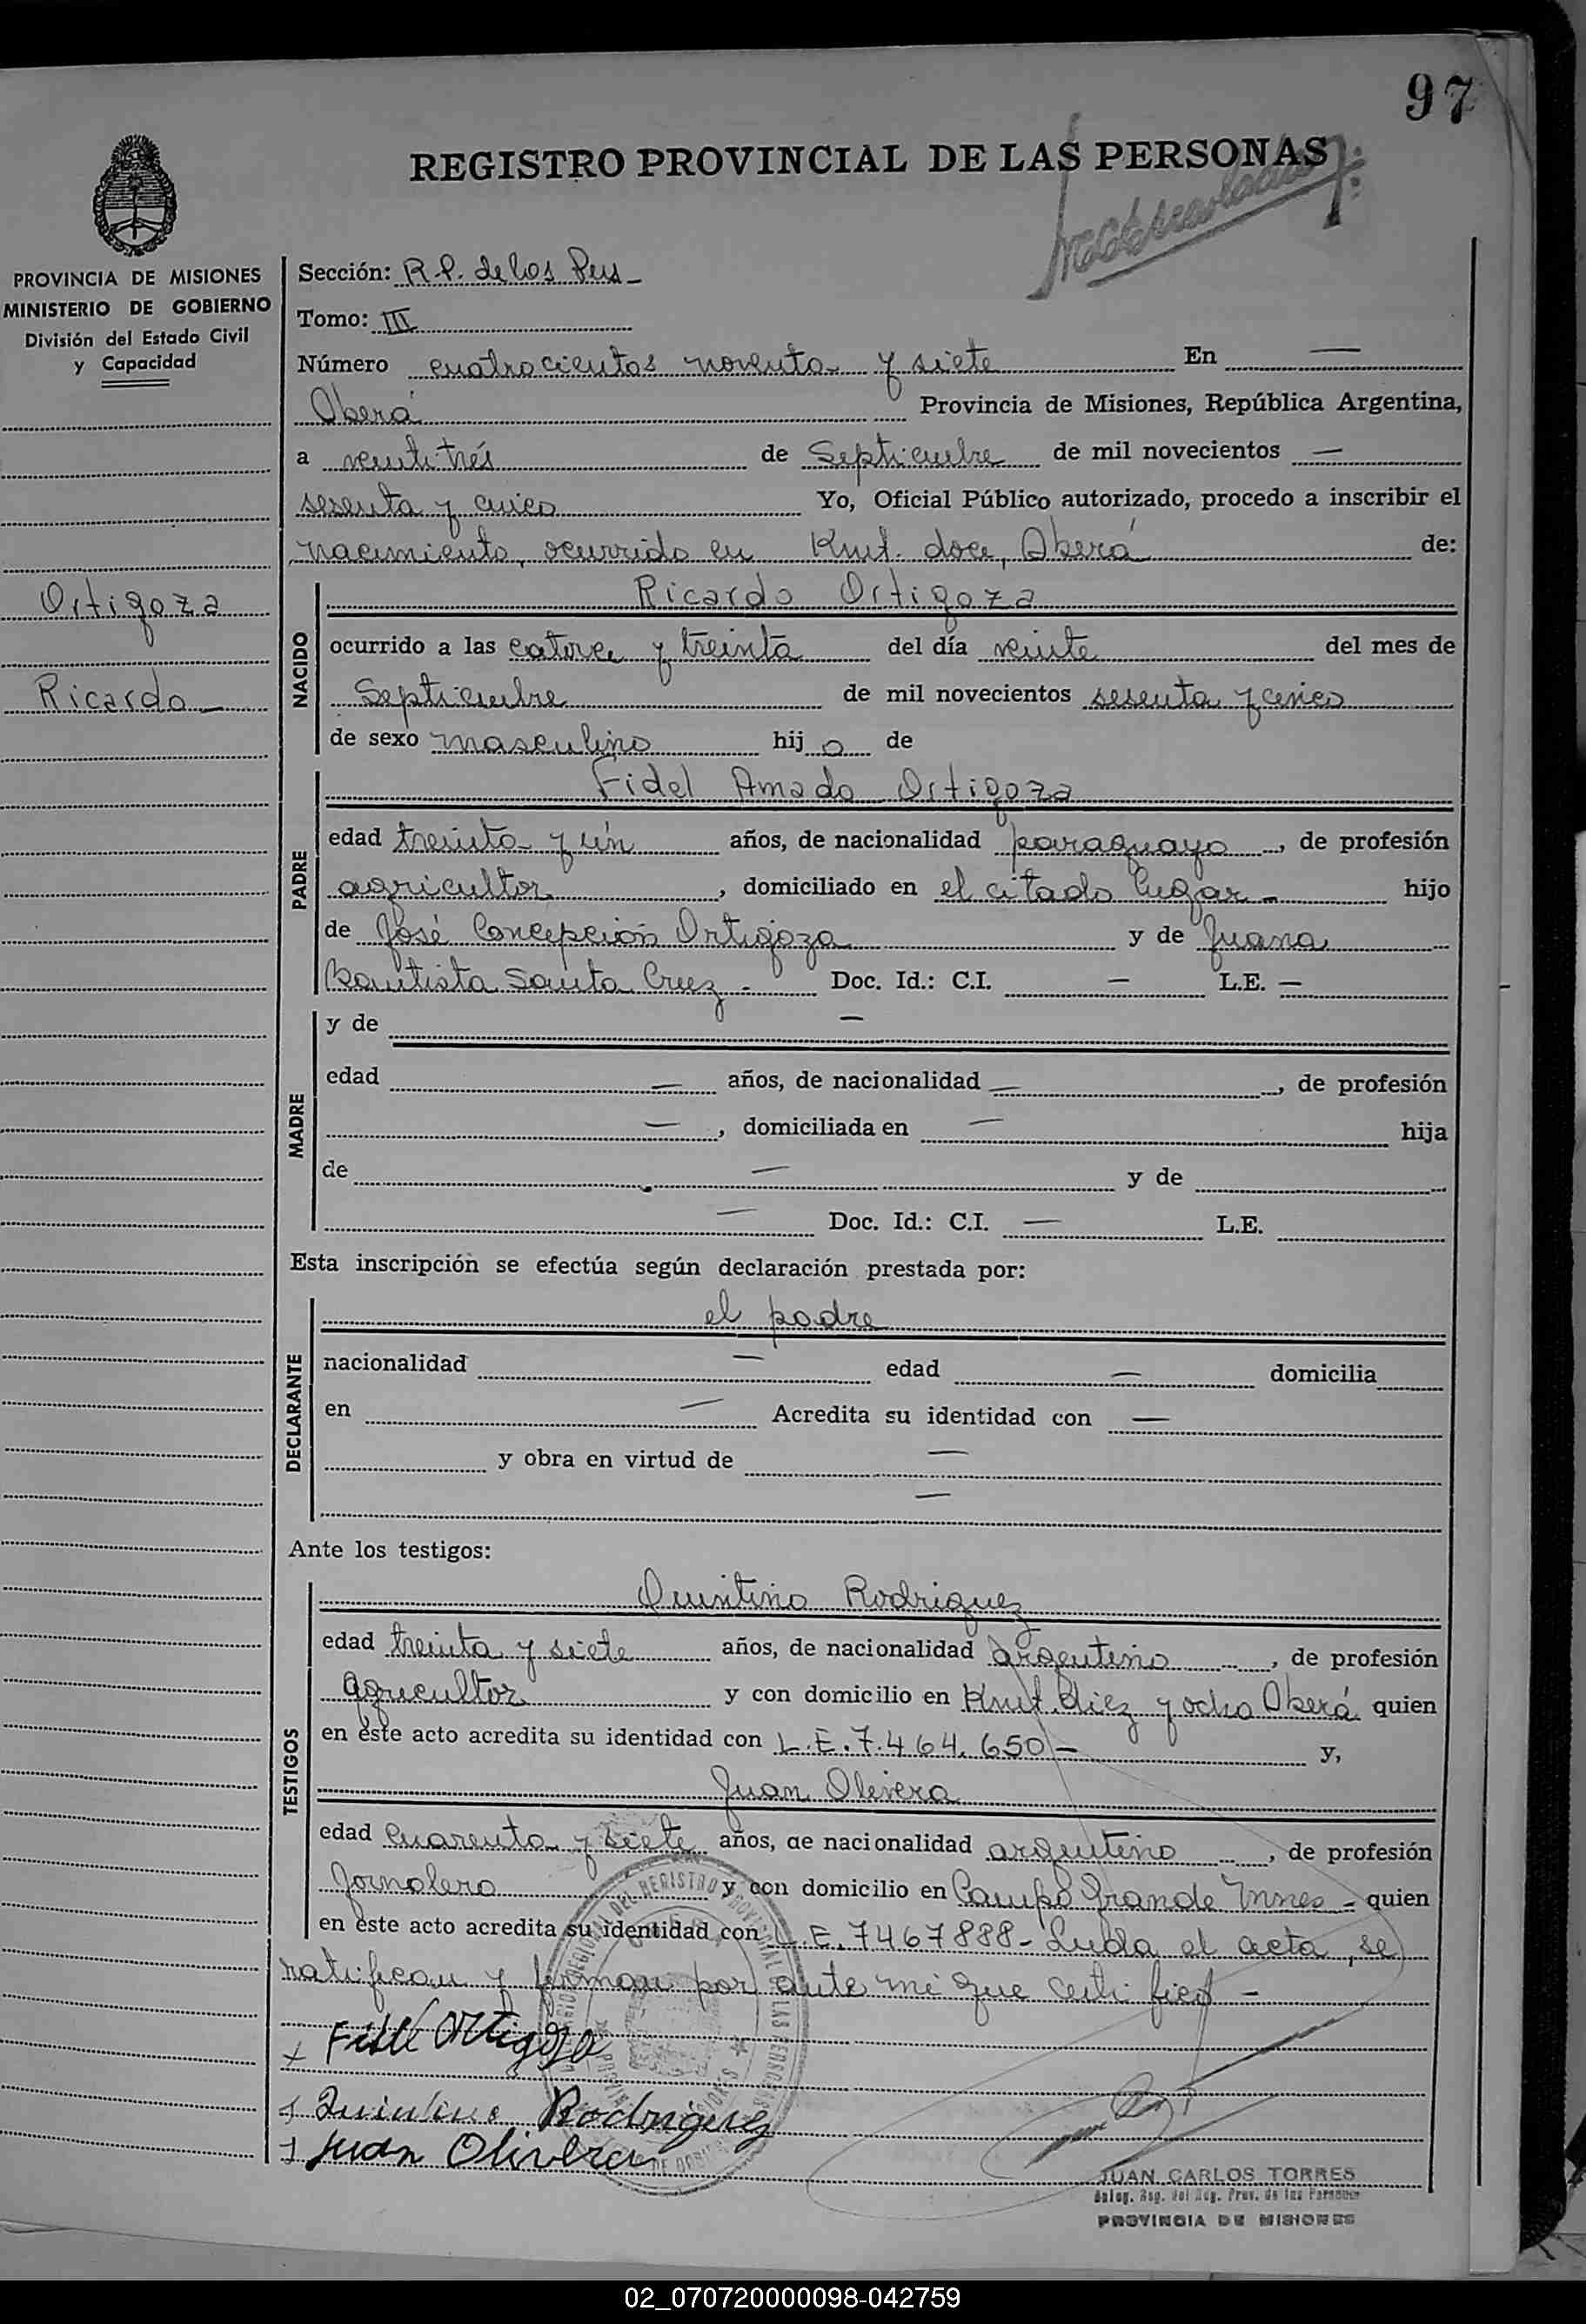 97
REGISTRO PROVINCIAL DE LAS PERSONAS
PROVINCIA DE MISIONES
MINISTERIO DE GOBIERNO
División del Estado Civil
y Capacidad
Sección: R.P. de las Pers -
Tomo: III
Número cuatrocientos noventa y siete En —
Oberá Provincia de Misiones, República Argentina,
a veintitrés de Septiembre de mil novecientos —
sesenta y cinco Yo, Oficial Público autorizado, procedo a inscribir el
nacimiento, ocurrido en Kmt. doce, Oberá de:
Ortigoza
Ricardo -
NACIDO
Ricardo Ortigoza
ocurrido a las catorce y treinta del día veinte del mes de
Septiembre de mil novecientos sesenta y cinco
de sexo masculino hijo de
PADRE
Fidel Amado Ortigoza
edad treinta y ún años, de nacionalidad paraguayo, de profesión
agricultor, domiciliado en el citado lugar - hijo
de José Concepción Ortigoza y de Juana
Bautista Santa Cruz - Doc. Id.: C.I. — L.E. —
MADRE
y de —
edad — años, de nacionalidad —, de profesión
—, domiciliada en — hija
de — y de
— Doc. Id.: C.I. — L.E.
Esta inscripción se efectúa según declaración prestada por:
DECLARANTE
el padre
nacionalidad — edad — domicilia
en — Acredita su identidad con —
y obra en virtud de —
—
Ante los testigos:
TESTIGOS
Quintino Rodriguez
edad treinta y siete años, de nacionalidad argentino, de profesión
agricultor y con domicilio en Kmt. diez y ocho Oberá quien
en este acto acredita su identidad con L.E. 7.464.650 - y,
Juan Olivera
edad cuarenta y siete años, de nacionalidad argentino, de profesión
Jornalero y con domicilio en Campo Grande Innes - quien
en este acto acredita su identidad con L.E. 7467888 - Leida el acta, se
ratifican y firman por ante mi que certifico -
x Fidel Ortigoza
Quintino Rodriguez
Juan Olivera
JUAN CARLOS TORRES
PROVINCIA DE MISIONES
02_070720000098-042759